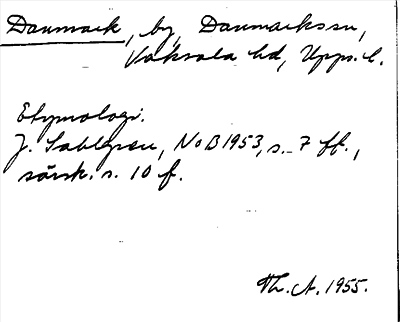 Danmark, by, Danmarks sn,
Vaksala hd, Upps. l.
Etymologi.
J. Sahlgren, NoB 1953, s. 7 ff.,
särsk. s. 10 f.
Th. A. 1955.